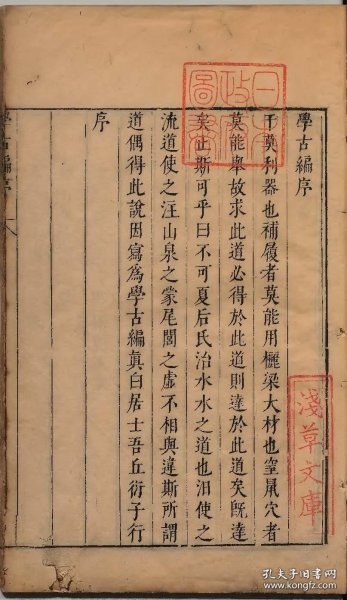 學古編序
干莫利器也補履者莫能用欐梁大材也窒鼠穴者
莫能舉故求此道必得於此道則達於此道矣旣達
矣止斯可乎曰不可夏后氏治水水之道也汨使之
流道使之注山泉之蒙尾閭之虛不相與違斯所謂
道偶得此說因寫爲學古編眞白居士吾丘衍子行
序
日本
政
圖書
淺草文庫
孔夫子旧书网
www.kongfz.com